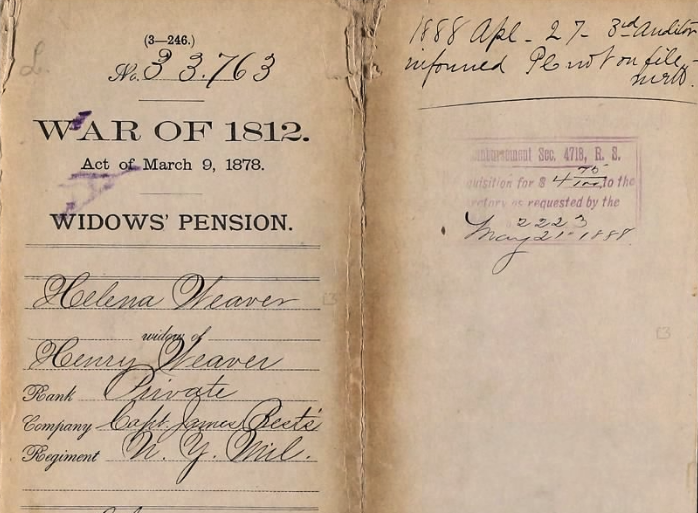 (3—246.)
No. 33.763
WAR OF 1812.
Act of March 9, 1878.
WIDOWS' PENSION.
Helena Weaver
widow of
Henry Weaver
Rank Private
Company Capt. James
Regiment N. Y. Mil.
1888 Apl. 27 - 3rd Auditor
informed not on file
Sec. 4718, R. S.
quisition for $ 4 70/100 to the
retary as requested by the
2223
May 21 1888.